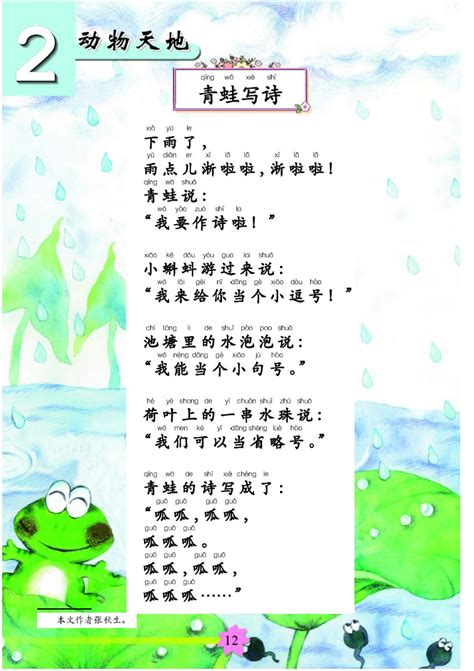 2 动物天地
qīng wā xiě shī
青蛙写诗
xià yǔ le
下雨了，
yǔ diǎn er xī lā lā xī lā lā
雨点儿淅啦啦，淅啦啦！
qīng wā shuō
青蛙说：
wǒ yào zuò shī la
“我要作诗啦！”
xiǎo kē dǒu yóu guo lai shuō
小蝌蚪游过来说：
wǒ lái gěi nǐ dāng gè xiǎo dòu hào
“我来给你当个小逗号！”
chí táng li de shuǐ pào pao shuō
池塘里的水泡泡说：
wǒ néng dāng gè xiǎo jù hào
“我能当个小句号。”
hé yè shang de yí chuàn shuǐ zhū shuō
荷叶上的一串水珠说：
wǒ men kě yǐ dāng shěng lüè hào
“我们可以当省略号。”
qīng wā de shī xiě chéng le
青蛙的诗写成了：
guā guā guā guā
“呱呱，呱呱，
guā guā guā
呱呱呱。
guā guā guā guā
呱呱，呱呱，
guā guā guā
呱呱呱……”
本文作者张秋生。
12